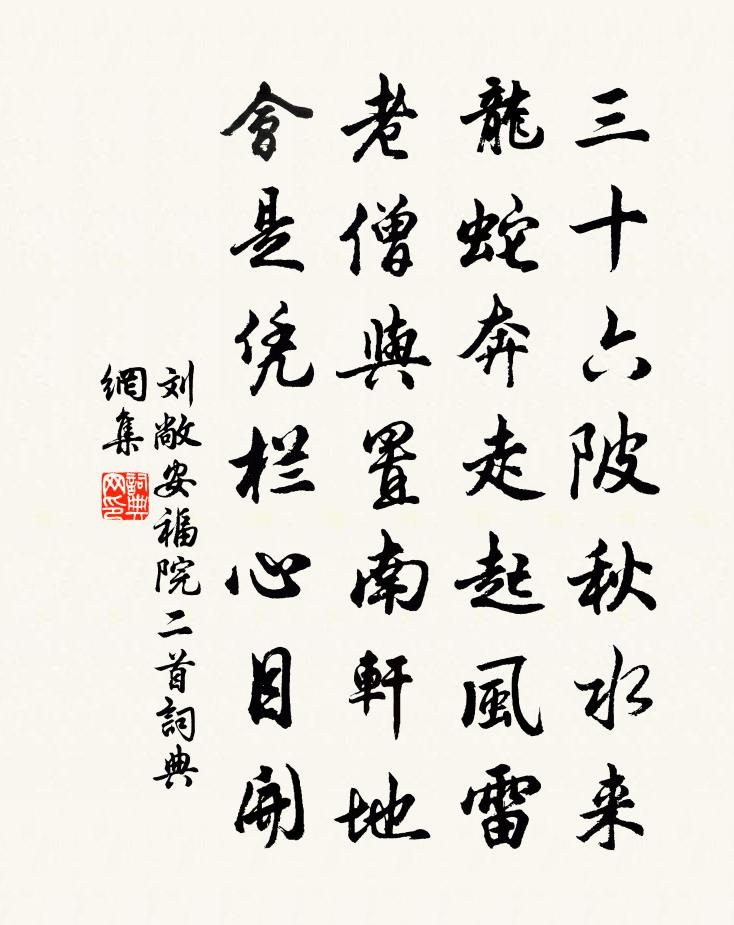 三十六陂秋水来
龍蛇奔走起風雷
老僧與置南軒地
會是凭栏心目開
刘敞安福院二首詞典
網集
詞典
网印